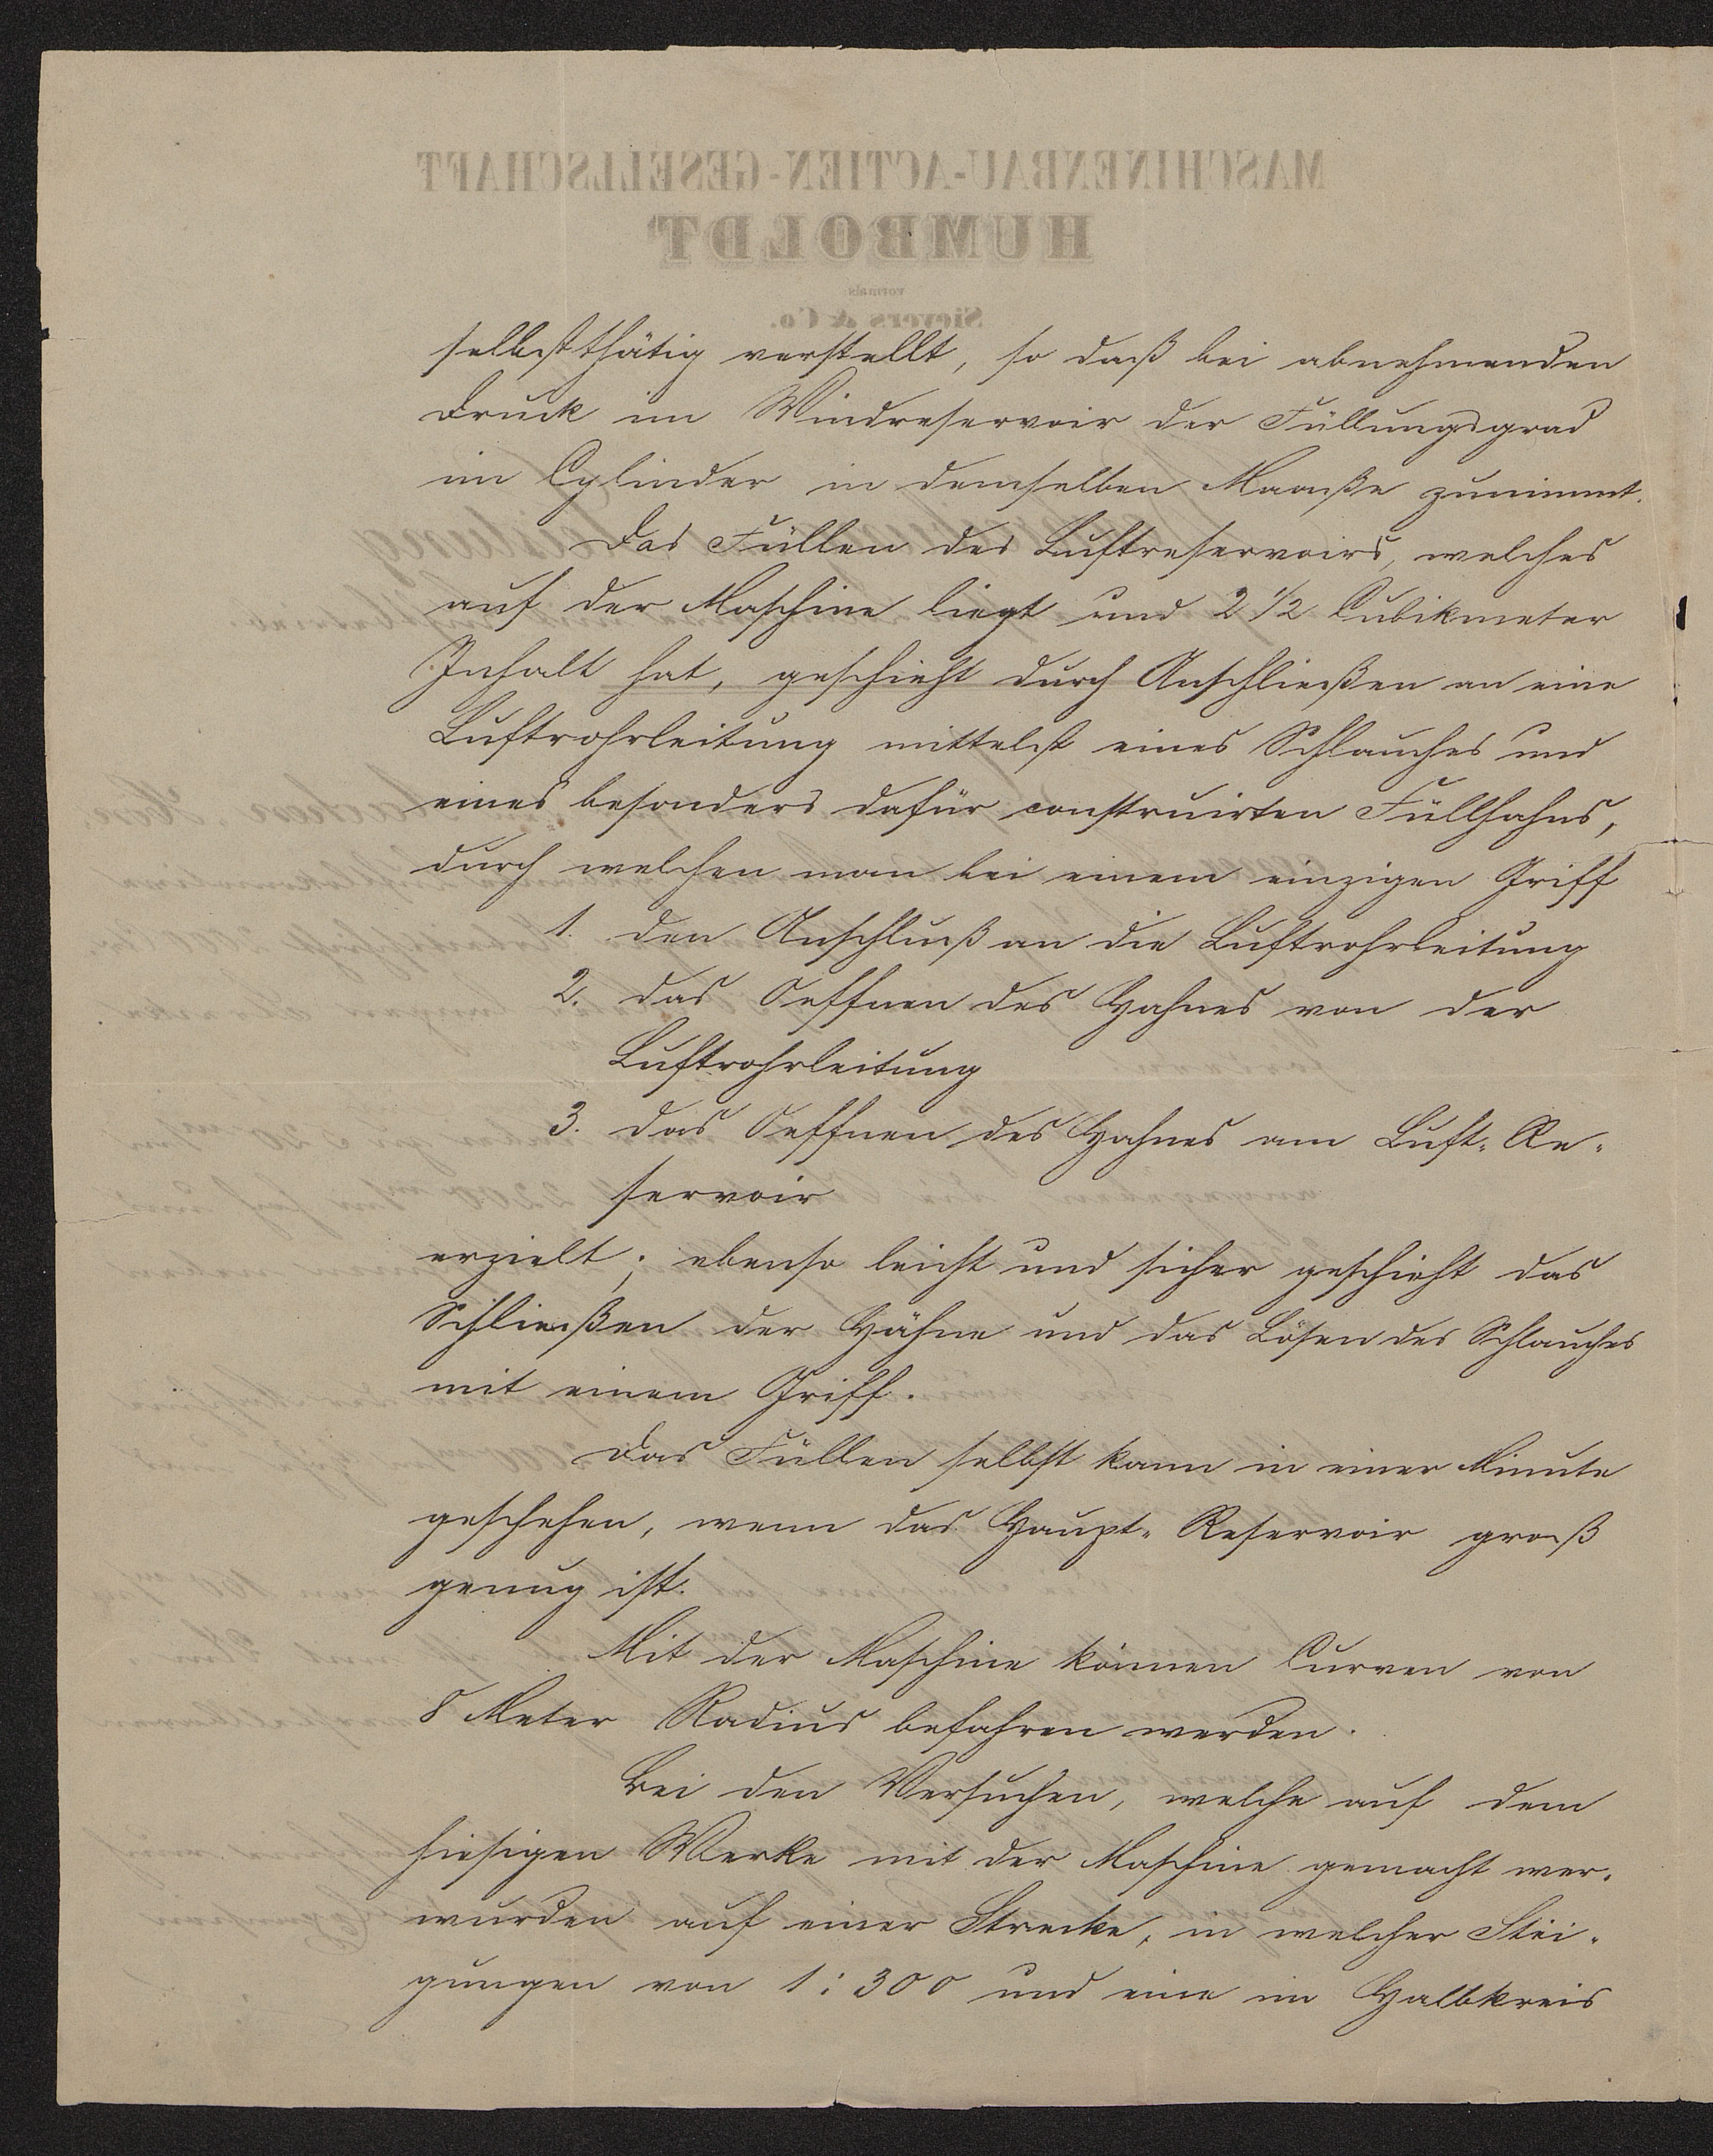 MASCHINENBAU-ACTIEN-GESELLSCHAFT
HUMBOLDT
vormals
Sievers & Co.
selbstthätig verstellt, so daß bei abnehmenden
Druck im Windreservoir der Füllungsgrad
im Cylinder in demselben Maaße zunimmt.
Das Füllen des Luftreservoirs, welches
auf der Maschine liegt und 2 1/2 Cubikmeter
Inhalt hat, geschieht durch Anschließen an eine
Luftrohrleitung mittelst eines Schlauches und
eines besonders dafür construirten Füllhahns,
durch welchen man bei einem einzigen Griff
1. den Anschluß an die Luftrohrleitung
2. das Oeffnen des Hahnes von der
Luftrohrleitung
3. das Oeffnen des Hahnes am Luft-Re-
servoir
erzielt; ebenso leicht und sicher geschieht das
Schließen der Hähne und das Lösen des Schlauches
mit einem Griff.
Das Füllen selbst kann in einer Minute
geschehen, wenn das Haupt-Reservoir groß
genug ist.
Mit der Maschine können Curven von
8 Meter Radius befahren werden.
Bei den Versuchen, welche auf dem
hiesigen Werke mit der Maschine gemacht wer-
wurden auf einer Strecke, in welcher Stei-
gungen von 1:300 und eine im Halbkreis